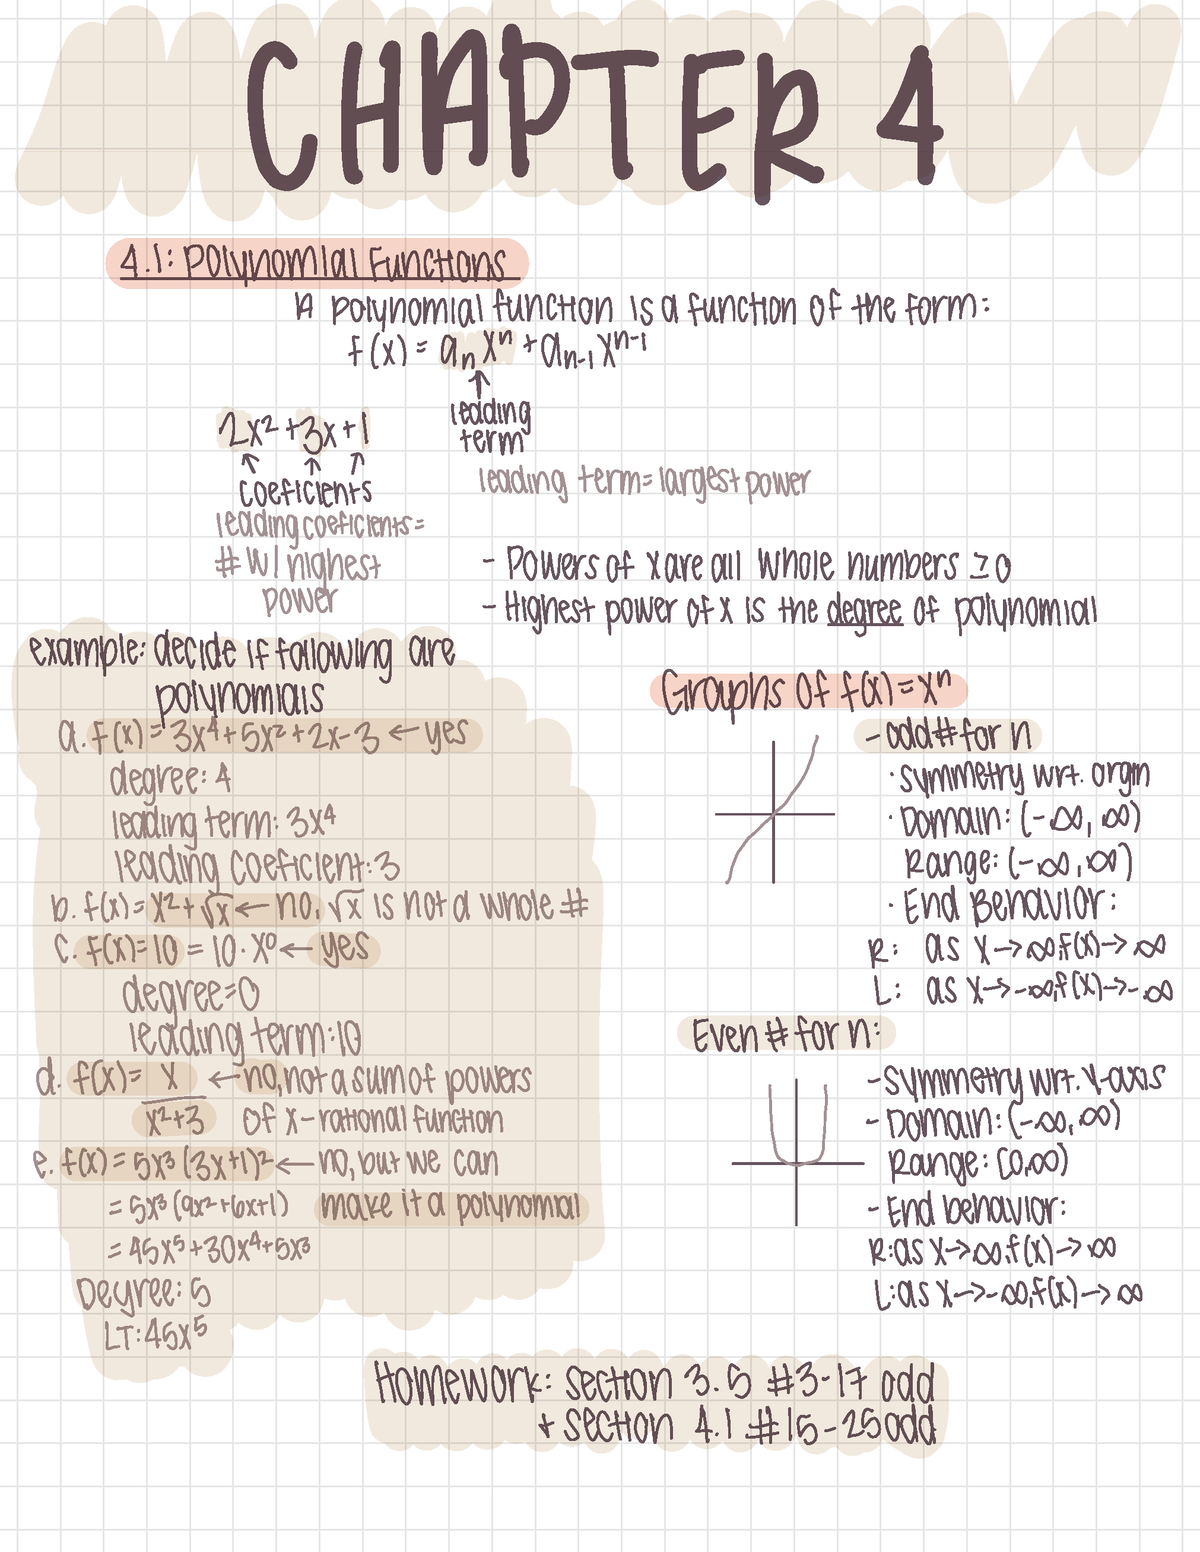 CHAPTER 4
4.1: Polynomial Functions
A polynomial function is a function of the form:
f(x) = aₙxⁿ + aₙ₋₁xⁿ⁻¹
↑
leading
term
leading term = largest power
2x² + 3x + 1
↑ ↑ ↑
coeficients
leading coeficients =
# w/ highest
power
- Powers of x are all whole numbers ≥ 0
- Highest power of x is the degree of polynomial
example: decide if following are
polynomials
a. f(x) = 3x⁴ + 5x² + 2x - 3 ← yes
degree: 4
leading term: 3x⁴
leading coeficient: 3
b. f(x) = x² + √x ← no, √x is not a whole #
c. f(x) = 10 = 10 · x⁰ ← yes
degree = 0
leading term: 10
d. f(x) = x ← no, not a sum of powers
x² + 3 of x - rational function
e. f(x) = 5x³ (3x+1)² ← no, but we can
= 5x³ (9x² + 6x + 1) make it a polynomial
= 45x⁵ + 30x⁴ + 5x³
Degree: 5
LT: 45x⁵
Graphs of f(x) = xⁿ
- odd # for n
· Symmetry wrt. orgin
· Domain: (-∞, ∞)
Range: (-∞, ∞)
· End Behavior:
R: as x → ∞, f(x) → ∞
L: as x → -∞, f(x) → -∞
Even # for n:
- Symmetry wrt. y-axis
- Domain: (-∞, ∞)
Range: [0, ∞)
- End behavior:
R: as x → ∞, f(x) → ∞
L: as x → -∞, f(x) → ∞
Homework: section 3.5 #3-17 odd
+ section 4.1 #15-25 odd